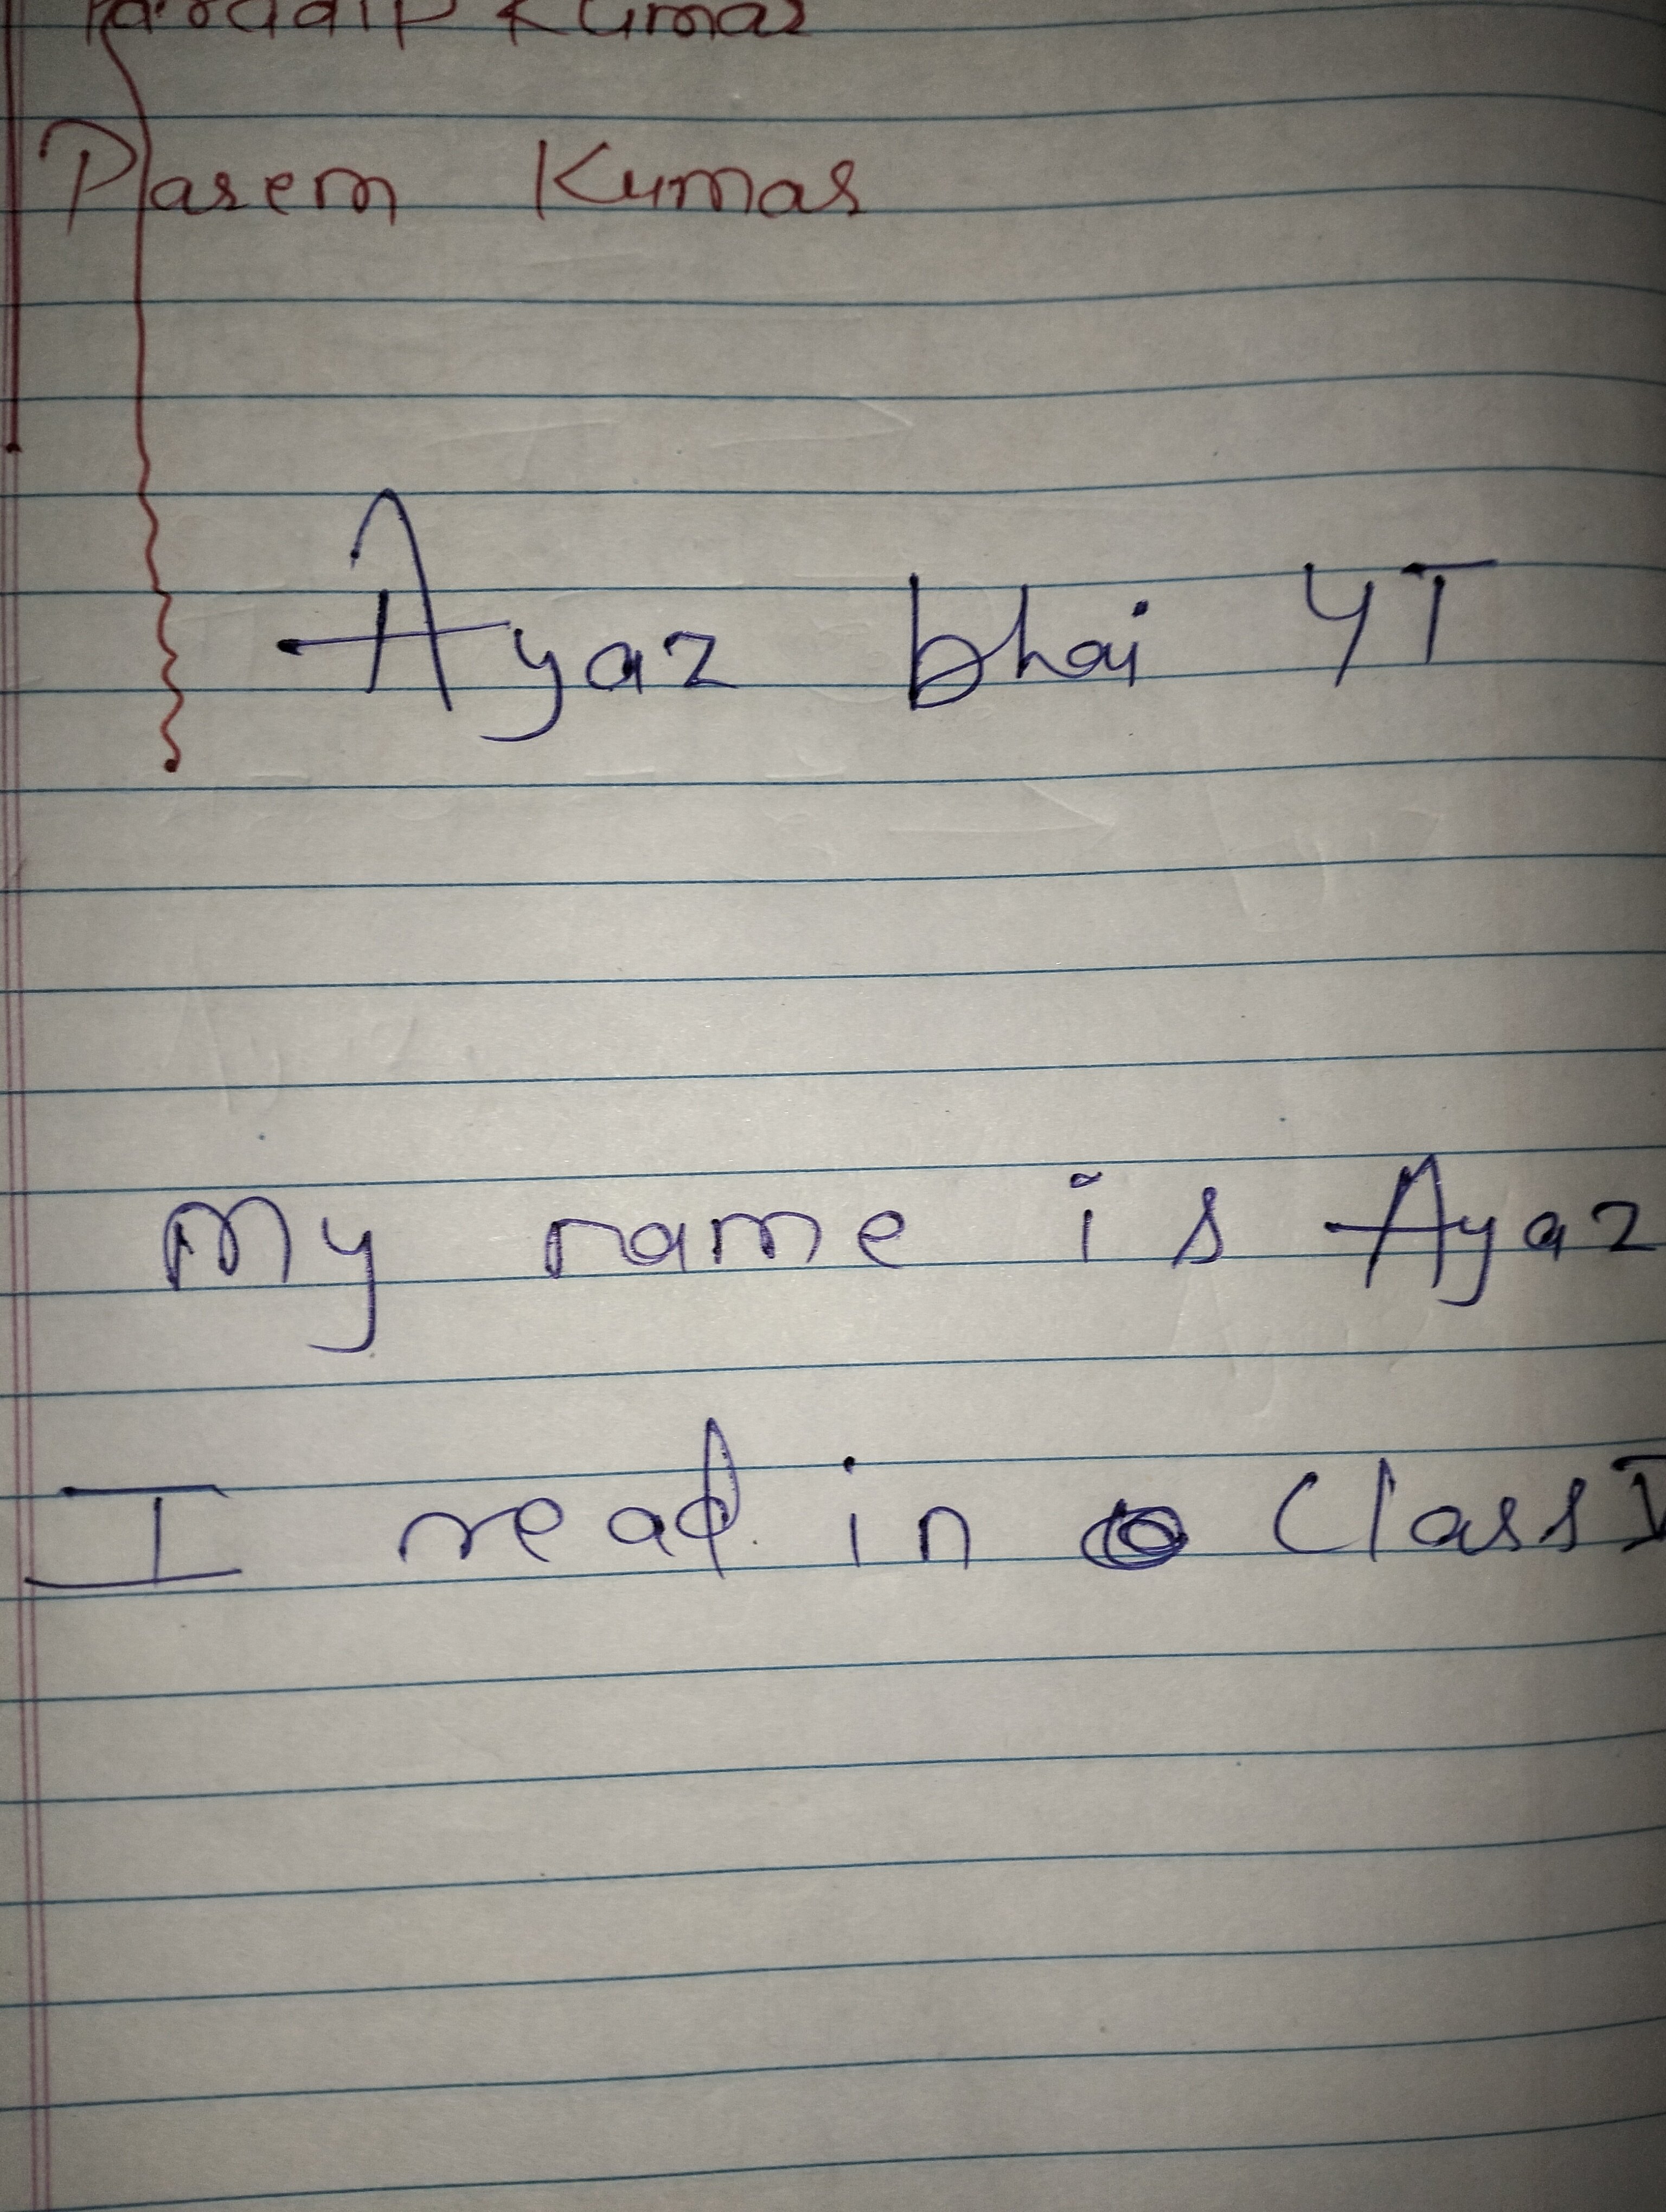 Kumar
Parem Kumar
Ayaz bhai YT
My name is Ayaz
I read in Class